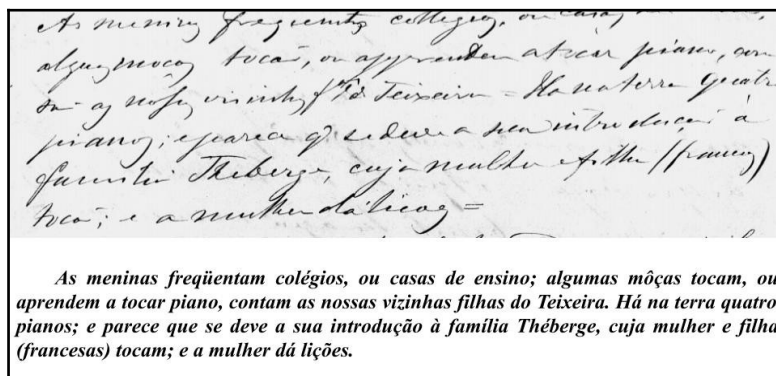 As meninas frequentão collegios, ou casas
algumas moças tocão, ou apprendem a tocar piano, com
as nossas visinhas fas do Teixeira = Ha na terra quatro
pianos; e parece q se deve a sua introducção á
familia Théberge, cuja mulher e filha (francezas)
tocão; e a mulher dá liçoes =
As meninas freqüentam colégios, ou casas de ensino; algumas môças tocam, ou
aprendem a tocar piano, contam as nossas vizinhas filhas do Teixeira. Há na terra quatro
pianos; e parece que se deve a sua introdução à família Théberge, cuja mulher e filha
(francesas) tocam; e a mulher dá lições.